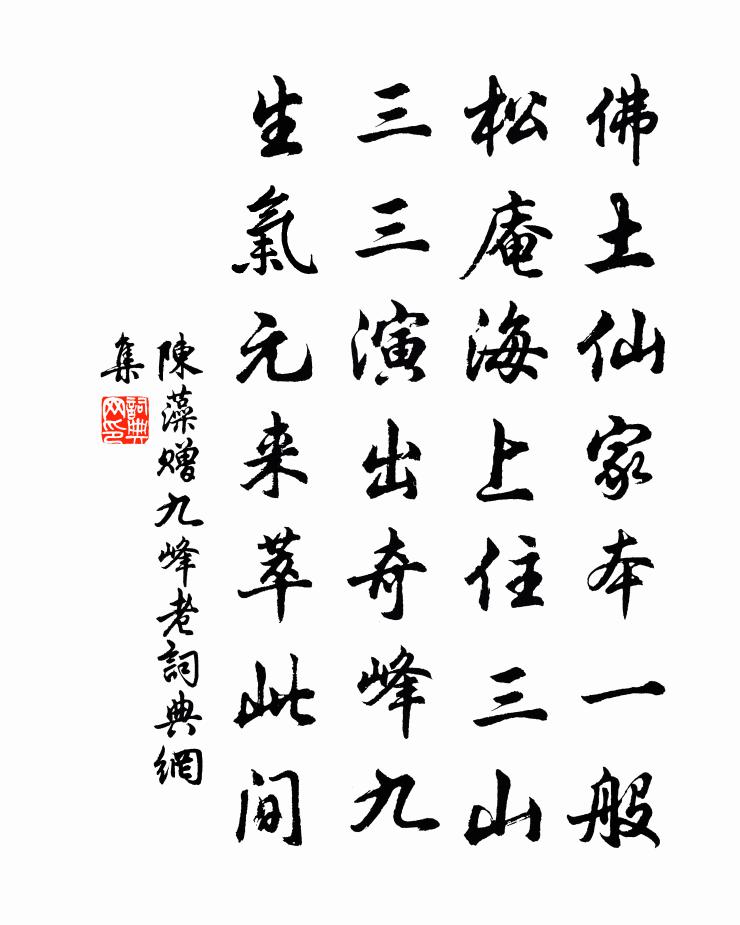 佛土仙家本一般
松庵海上住三山
三三演出奇峰九
生氣元来萃此间
陳藻赠九峰老詞典網
集
詞典网印